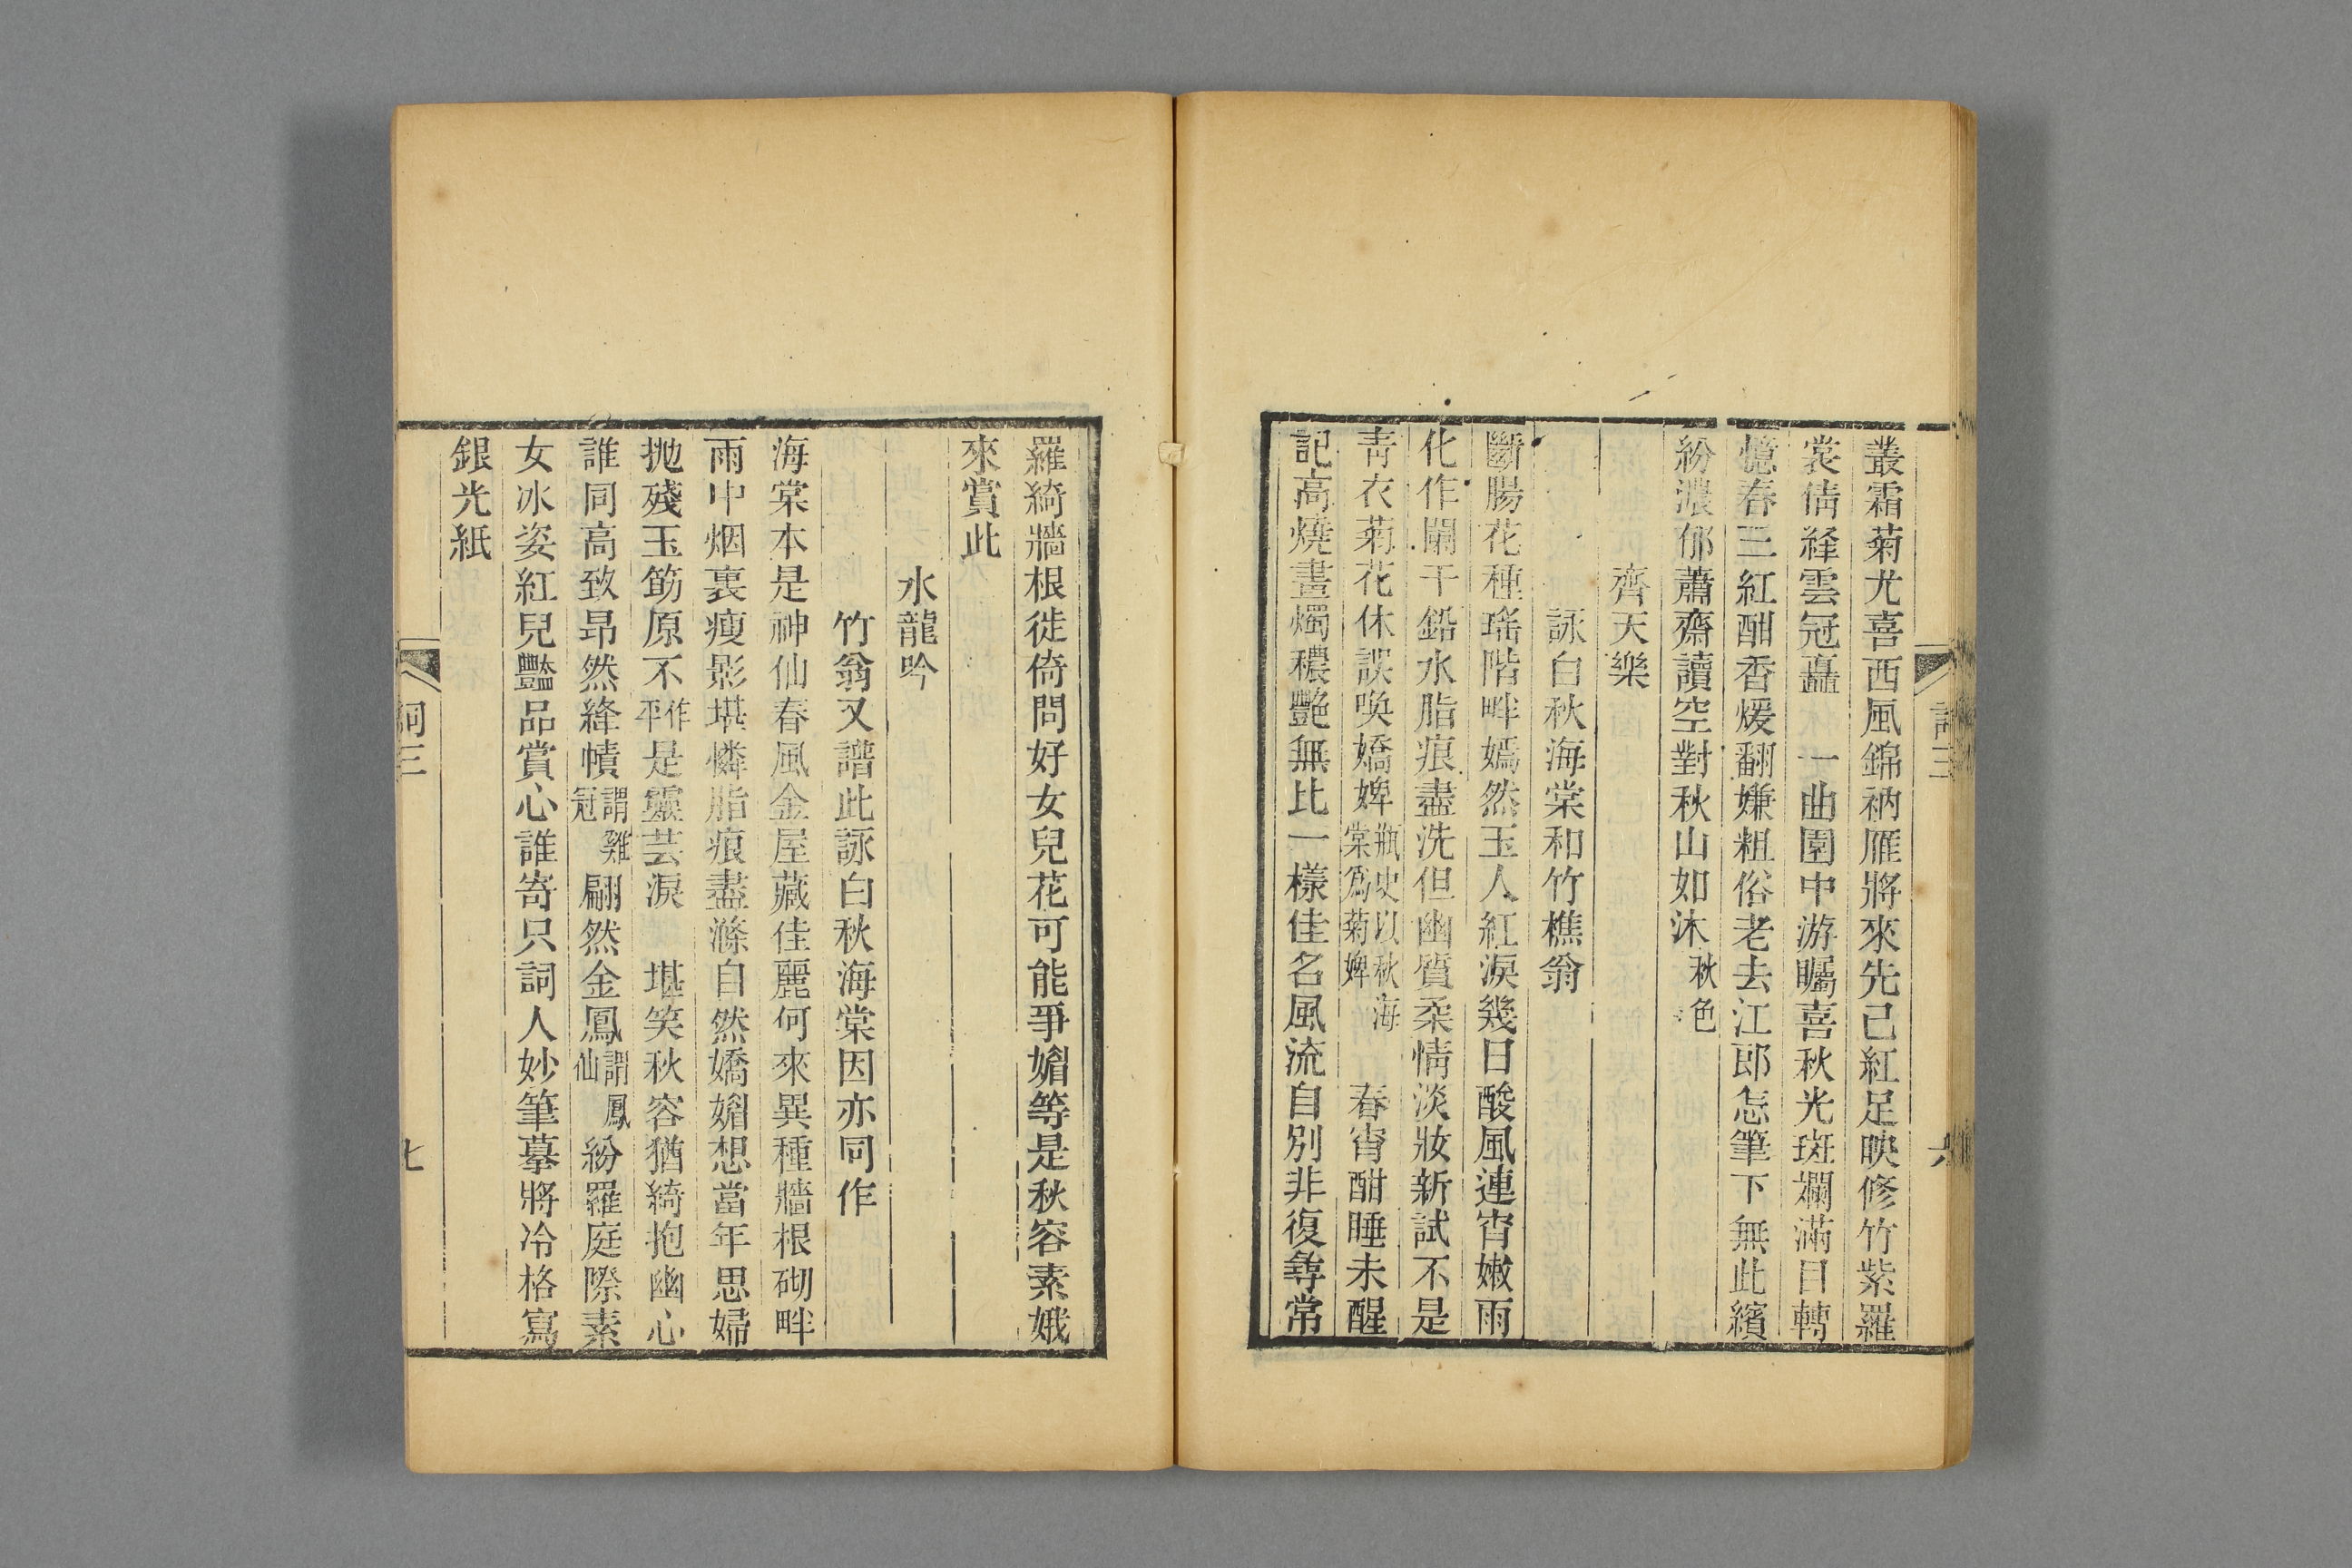 叢霜菊尤喜西風錦衲雁將來先已紅足映修竹紫羅
裳倩絳雲冠矗　一曲園中游矚喜秋光斑斕滿目轉
憶春三紅酣香煖翻嫌粗俗老去江郎怎筆下無此繽
紛濃郁蕭齋讀空對秋山如沐秋色
齊天樂
詠白秋海棠和竹樵翁
斷腸花種瑤階畔嫣然玉人紅淚幾日酸風連宵嫩雨
化作闌干鉛水脂痕盡洗但幽質柔情淡妝新試不是
青衣菊花休誤喚嬌婢瓶史以秋海棠爲菊婢　春宵酣睡未醒
記高燒畫燭穠艷無比一樣佳名風流自別非復尋常
詞三
六
羅綺牆根徙倚問好女兒花可能爭媚等是秋容素娥
來賞此
水龍吟
竹翁又譜此詠白秋海棠因亦同作
海棠本是神仙春風金屋藏佳麗何來異種牆根砌畔
雨中烟裏瘦影堪憐脂痕盡滌自然嬌媚想當年思婦
拋殘玉筯原不作平是靈芸淚　堪笑秋容猶綺抱幽心
誰同高致昂然絳幘謂雞冠翩然金鳳謂鳳仙紛羅庭際素
女冰姿紅兒豔品賞心誰寄只詞人妙筆摹將冷格寫
銀光紙
詞三
七